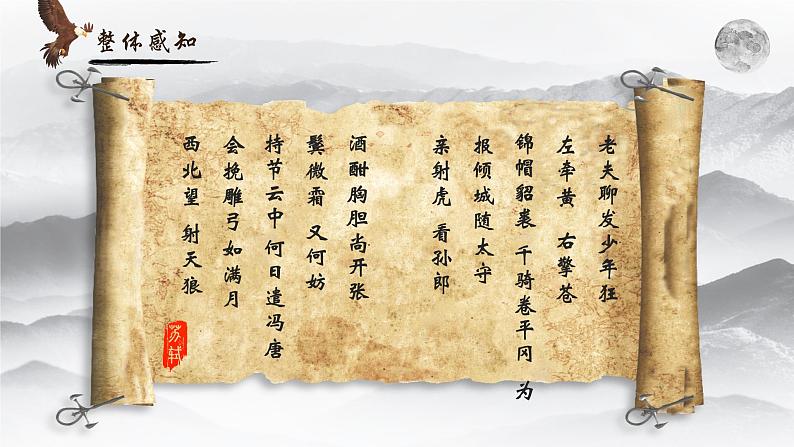 整体感知
老夫聊发少年狂
左牵黄 右擎苍
锦帽貂裘 千骑卷平冈 为
报倾城随太守
亲射虎 看孙郎
酒酣胸胆尚开张
鬓微霜 又何妨
持节云中 何日遣冯唐
会挽雕弓如满月
西北望 射天狼
苏轼